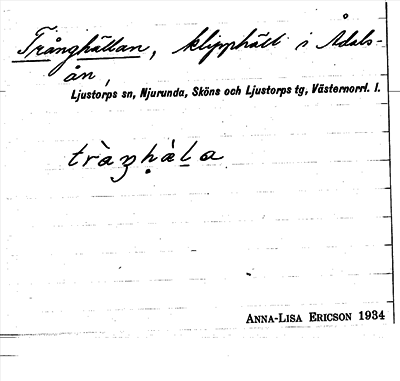 Trånghällan, klipphäll i Ådals-
ån,
Ljustorps sn, Njurunda, Sköns och Ljustorps tg, Västernorrl. l.
tràŋhàla
ANNA-LISA ERICSON 1934